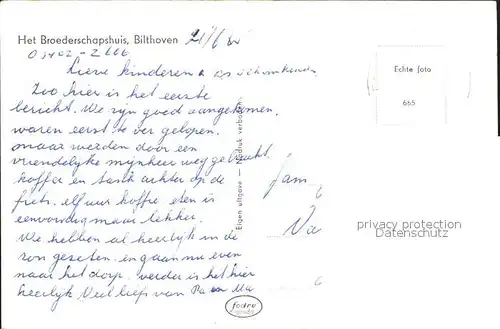 Het Broederschapshuis, Bilthoven 21/6
03402-2606
Lieve kinderen
Zoo hier is het eerste
bericht. We zijn goed aangekomen,
waren eerst te ver gelopen.
maar werden door een
vriendelijke mijnheer weg gebracht.
koffer en tasch achter op de
fiets. elf uur koffie eten is
eenvoudig maar lekker.
We hebben al heerlijk in de
zon gezeten. en gaan nu even
naar het dorp. verder is het hier
heerlijk Veel liefs van Pa en Ma
Eigen uitgave — Nadruk verboden.
Echte foto
665
fam
Va
privacy protection
Datenschutz
fodru